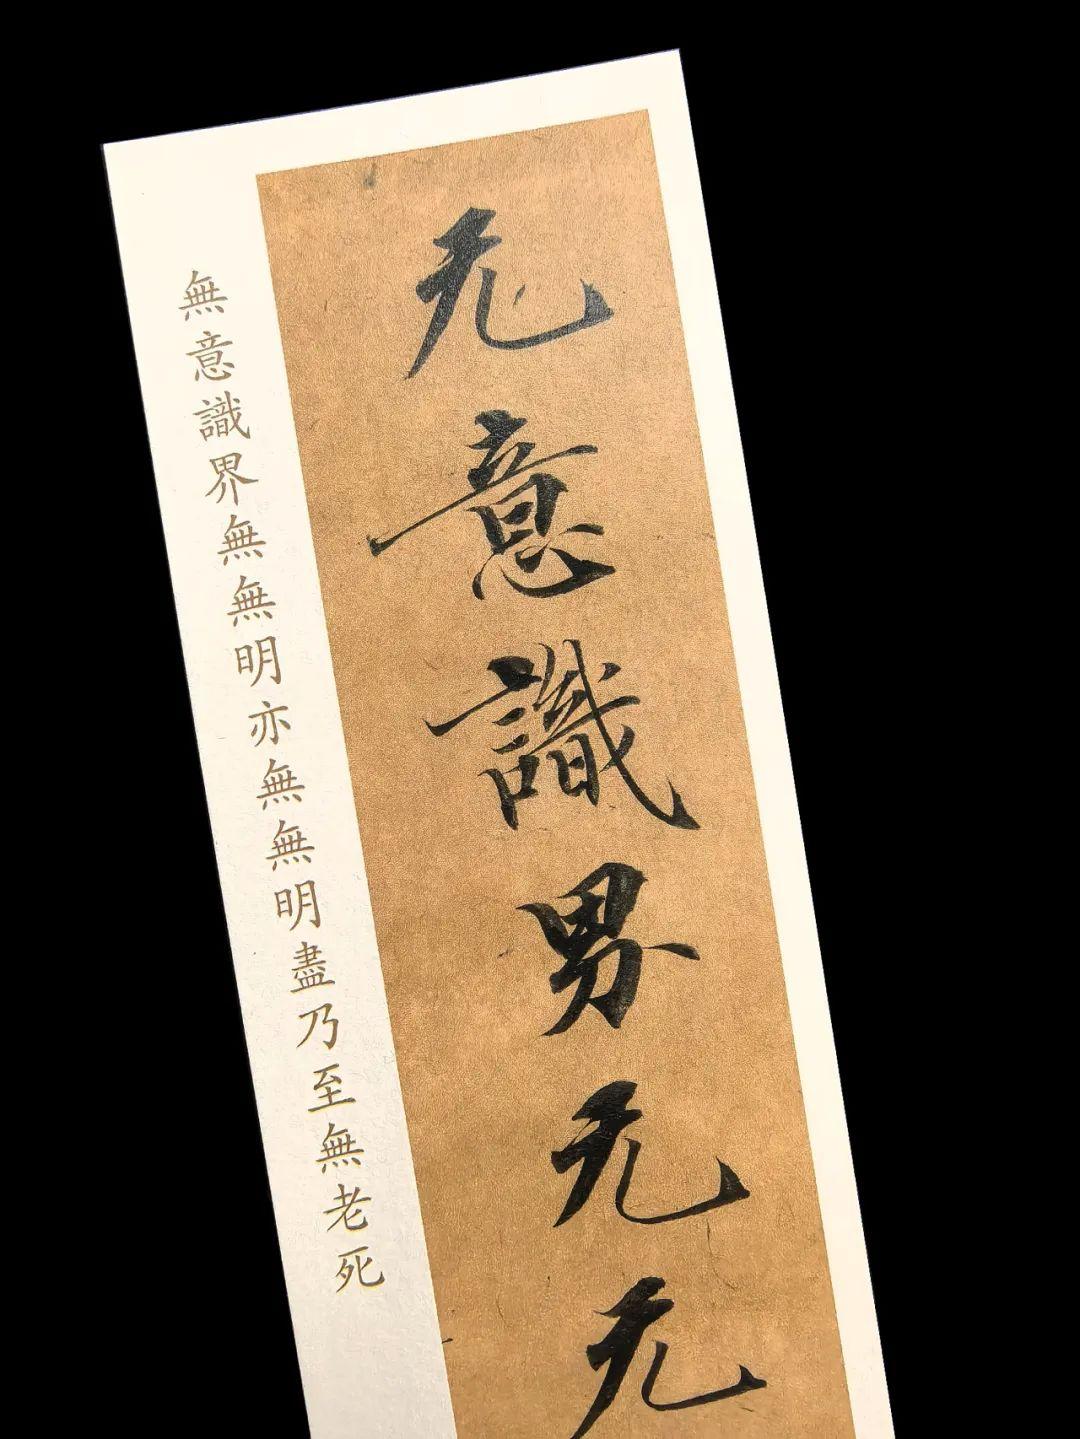 无意識界无无
無意識界無無明亦無無明盡乃至無老死